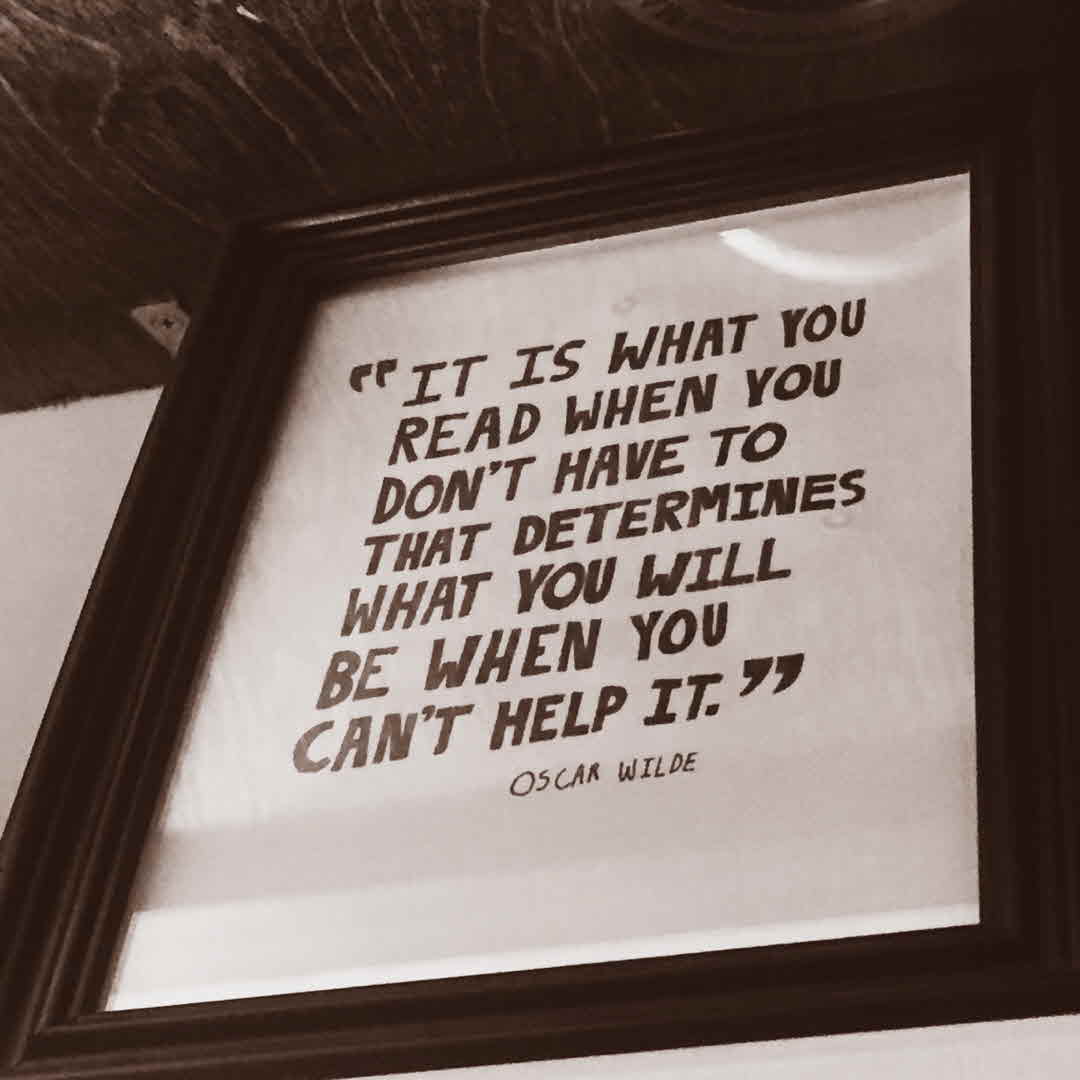 “IT IS WHAT YOU
READ WHEN YOU
DON'T HAVE TO
THAT DETERMINES
WHAT YOU WILL
BE WHEN YOU
CAN'T HELP IT.”
OSCAR WILDE